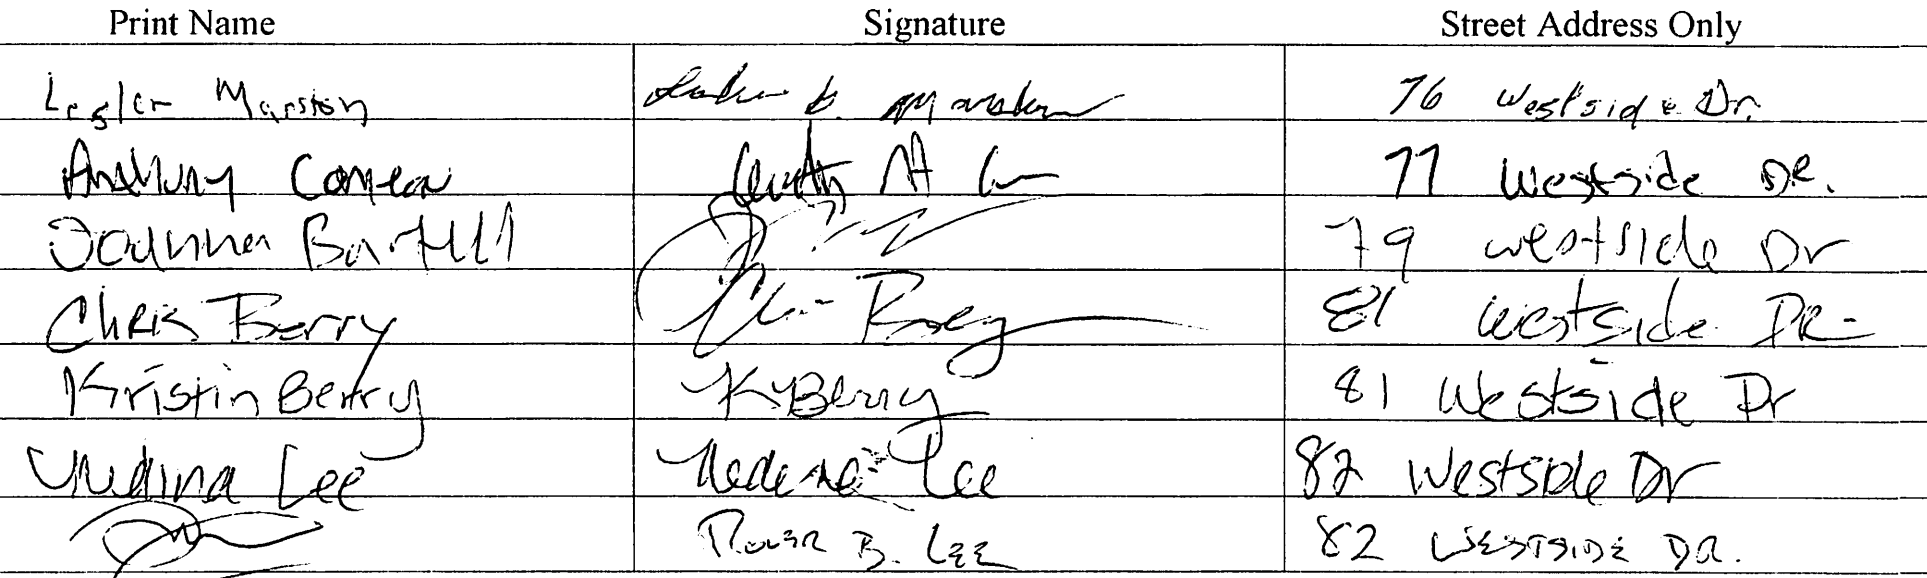 Print Name Signature Street Address Only
Lester Marston Marston 76 Westside Dr.
Anthony Comeau 77 Westside Dr.
Joanna Bartlett 79 westside Dr
Chris Berry Chris Berry 81 Westside DR-
Kristin Berry K Berry 81 Westside Dr
Nedina Lee Nedina Lee 82 Westside Dr
B. LEE 82 WESTSIDE DR.